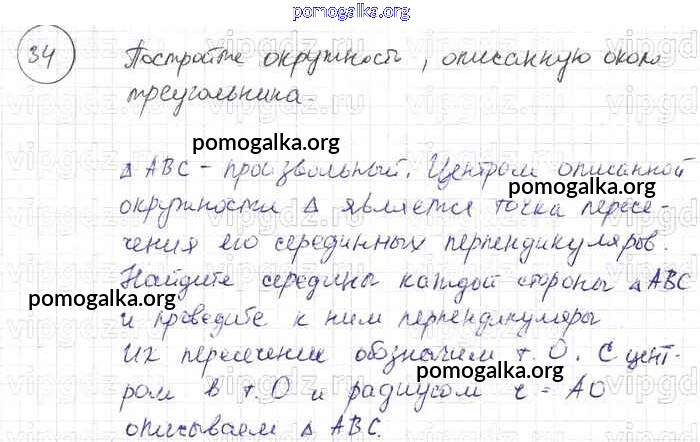 pomogalka.org
34 Постройте окружность, описанную около
треугольника.
pomogalka.org
△ ABC - произвольный. Центром описанной
pomogalka.org
окружности △ является точка пересе-
чения его серединных перпендикуляров.
Найдите середины каждой стороны △ ABC
pomogalka.org
и проведите к ним перпендикуляры
pomogalka.org
Их пересечение обозначим т. О. С цент-
pomogalka.org
ром в т. О и радиусом r = AO
описываем △ ABC.